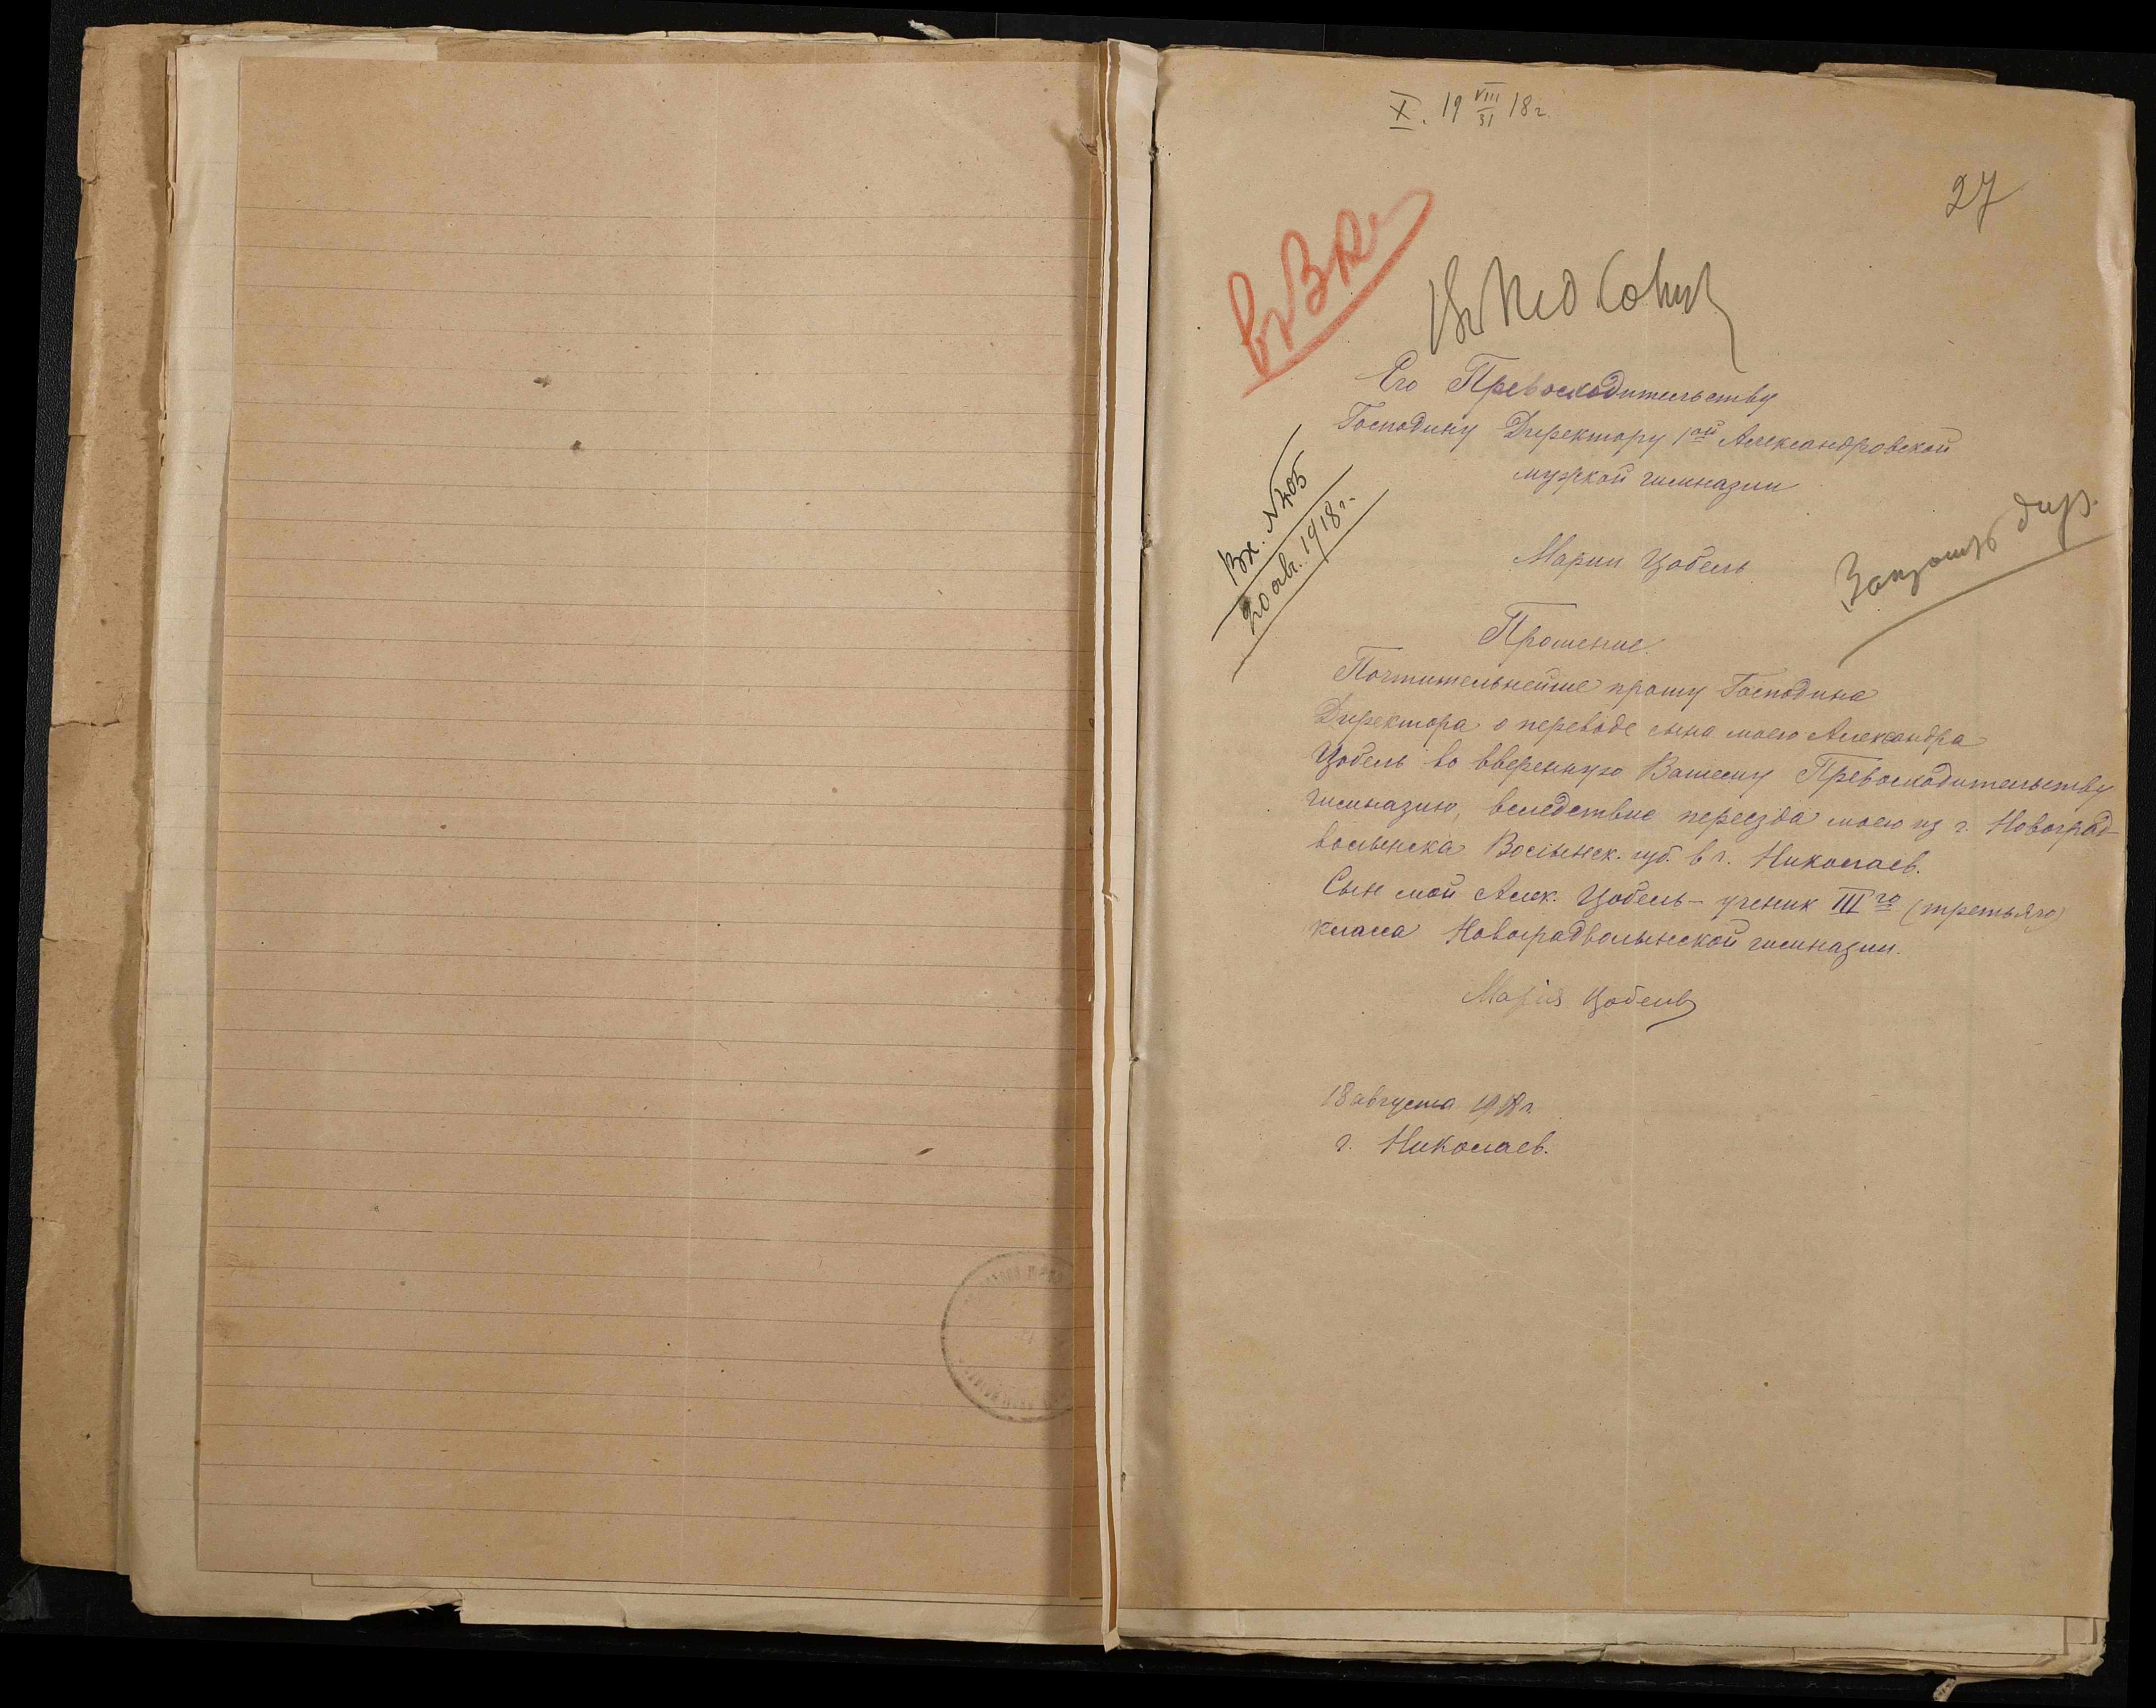 X. 19 VIII/31 18 г.
27
Въ Пед Совѣт
Его Превосходительству
Господину Директору 1ой Александровской
мужской гимназии
Вх. № 405
20 авг. 1918 г.
Марии Цобель
Запросить дир.
Прошение.
Почтительнейше прошу Господина
Директора о переводе сына моего Александра
Цобель во вверенную Вашему Превосходительству
гимназию, вследствие переезда моего из г. Новоград-
волынска Волынск. губ. в г. Николаев.
Сын мой Алек. Цобель – ученик III го (третьяго)
класса Новоградволынской гимназии.
Марія Цобель
18 августа 1918 г.
г. Николаев.